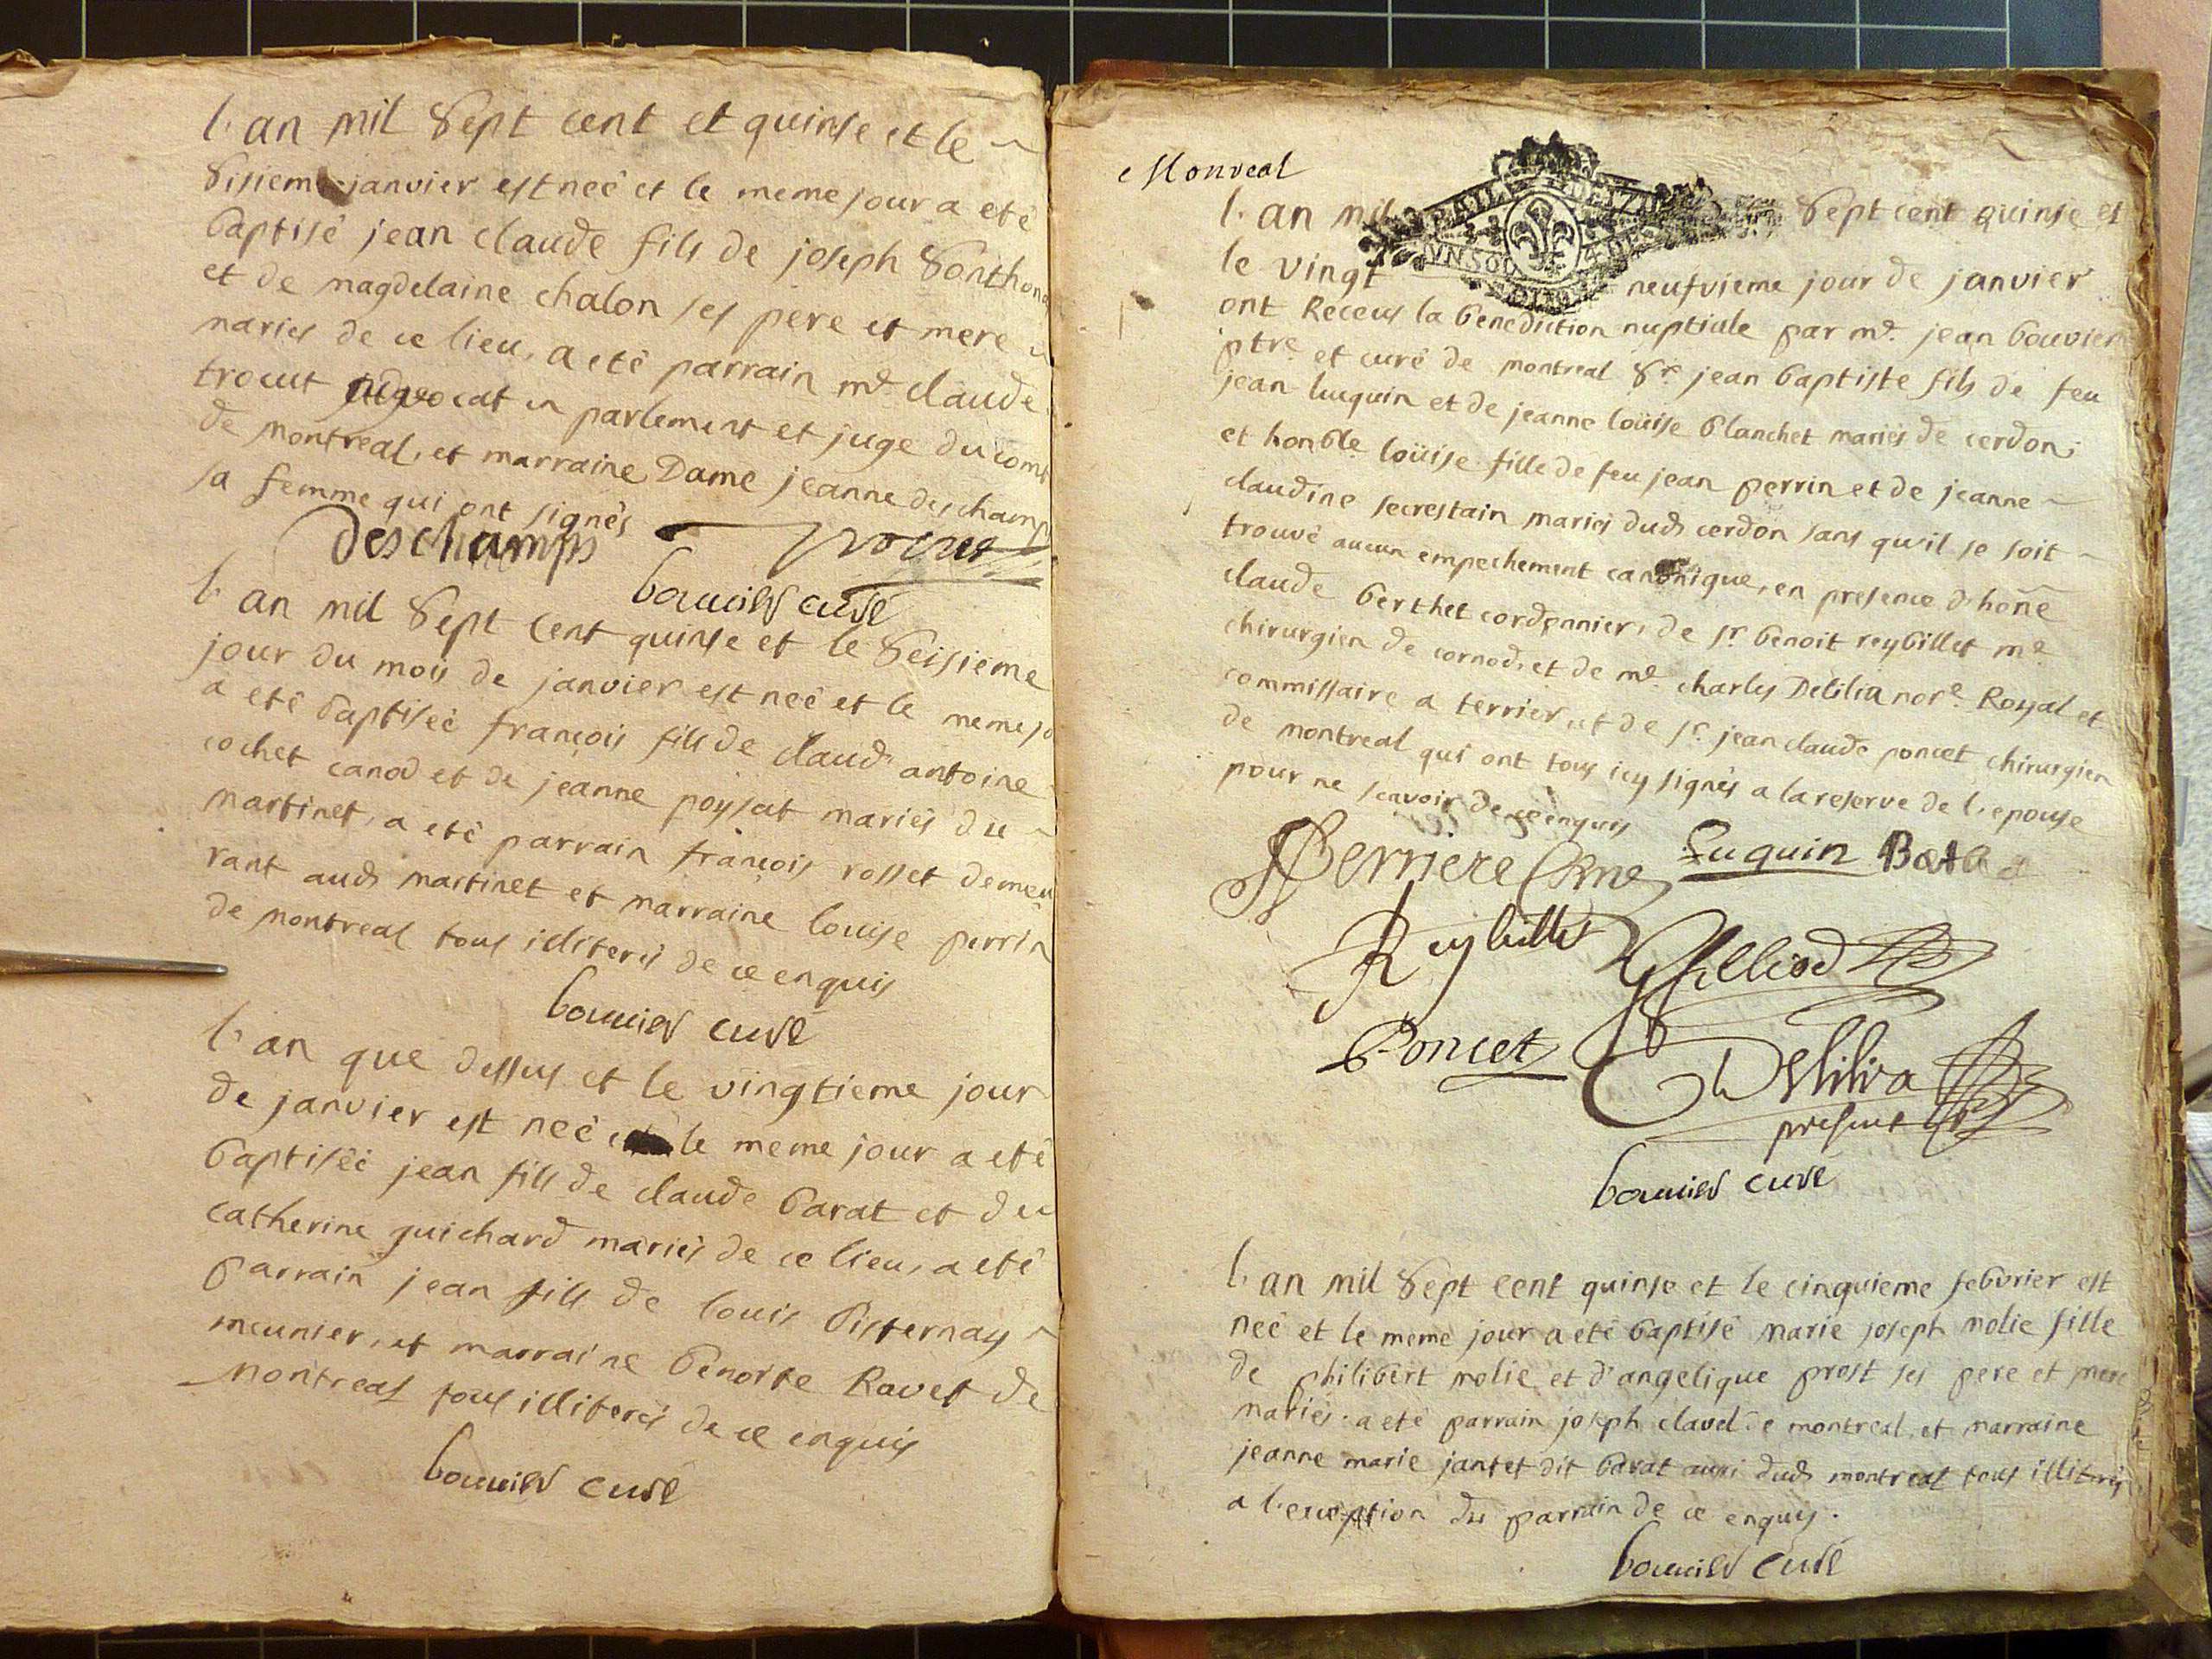 l'an mil sept cent et quinse et le
sisieme janvier est neé et le meme jour a eté
baptisé jean claude fils de joseph Sonthona
et de magdelaine chalon ses pere et mere
mariés de ce lieu, a eté parrain me claude
trocut advocat en parlement et juge du comt
de montreal, et marraine Dame jeanne deschamp
sa femme qui ont signés
Deschamps trocut
bouuier curé
l'an mil sept cent quinse et le seisieme
jour du mois de janvier est neé et le meme jo
a eté baptiseé françois fils de claud antoine
cochet canod et de jeanne poysat mariés du
martinet, a eté parrain françois rosset demeu
rant aud martinet et marraine louise perrin
de montreal tous illiterés de ce enquis
bouuier curé
l'an que dessus et le vingtieme jour
de janvier est neé et le meme jour a eté
baptiseé jean fils de claude barat et de
catherine guichard mariés de ce lieu, a eté
parrain jean fils de louis bisternay
meunier, et marraine benoite Ravet de
montreal tous illiterés de ce enquis
bouuier curé
Monreal
l'an mil sept cent quinse et
le vingt neufvieme jour de janvier
ont Receus la benediction nuptiale par me jean bouvier
ptre et curé de montreal Sr jean baptiste fils de feu
jean luquin et de jeanne loüise blanchet mariés de cerdon;
et honble loüise fille de feu jean perrin et de jeanne
claudine secrestain mariés dud cerdon sans qu'il se soit
trouvé aucun empechement canonique, en presence d'hone
claude berthet cordonnier, de sr benoit reybillet me
chirurgien de cornod, et de me charles Delilia nore Royal et
commissaire a terrier, et de sr jean claude poncet chirurgien
de montreal qui ont tous icy signés a la reserve de l'epouse
pour ne scavoir de ce enquis
Luquin
Reybillet
Poncet Delilia
present
bouuier curé
l'an mil sept cent quinse et le cinquieme febvrier est
neé et le meme jour a eté baptisé marie joseph molie fille
de philibert molie et d'angelique prost ses pere et mere
mariés. a eté parrain joseph clavel de montreal, et marraine
jeanne marie jantet dit barat aussi dud montreal tous illiterés
a l'exception du parrain de ce enquis.
bouuier curé